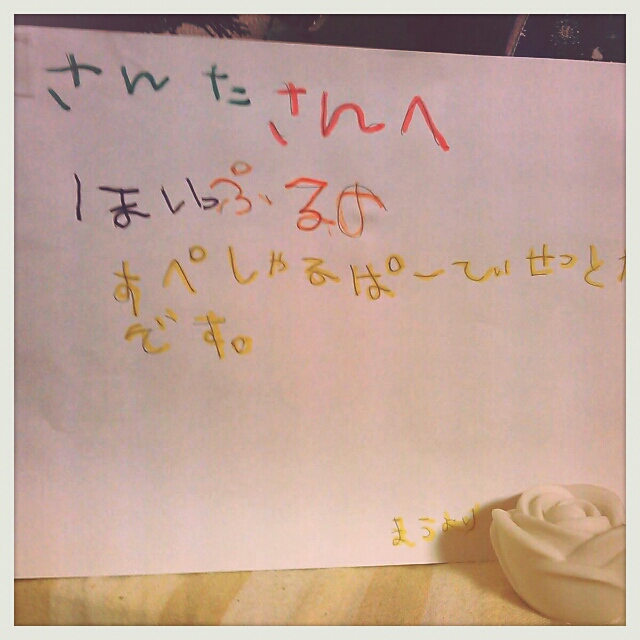 さんたさんへ
ほいっぷるの
すぺしゃるぱーてぃせっとが
です。
まうより